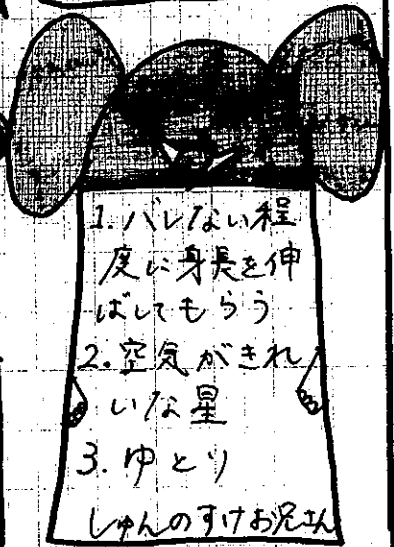 1. バレない程
度に身長を伸
ばしてもらう
2. 空気がきれ
いな星
3. ゆとり
しゅんのすけお兄さん